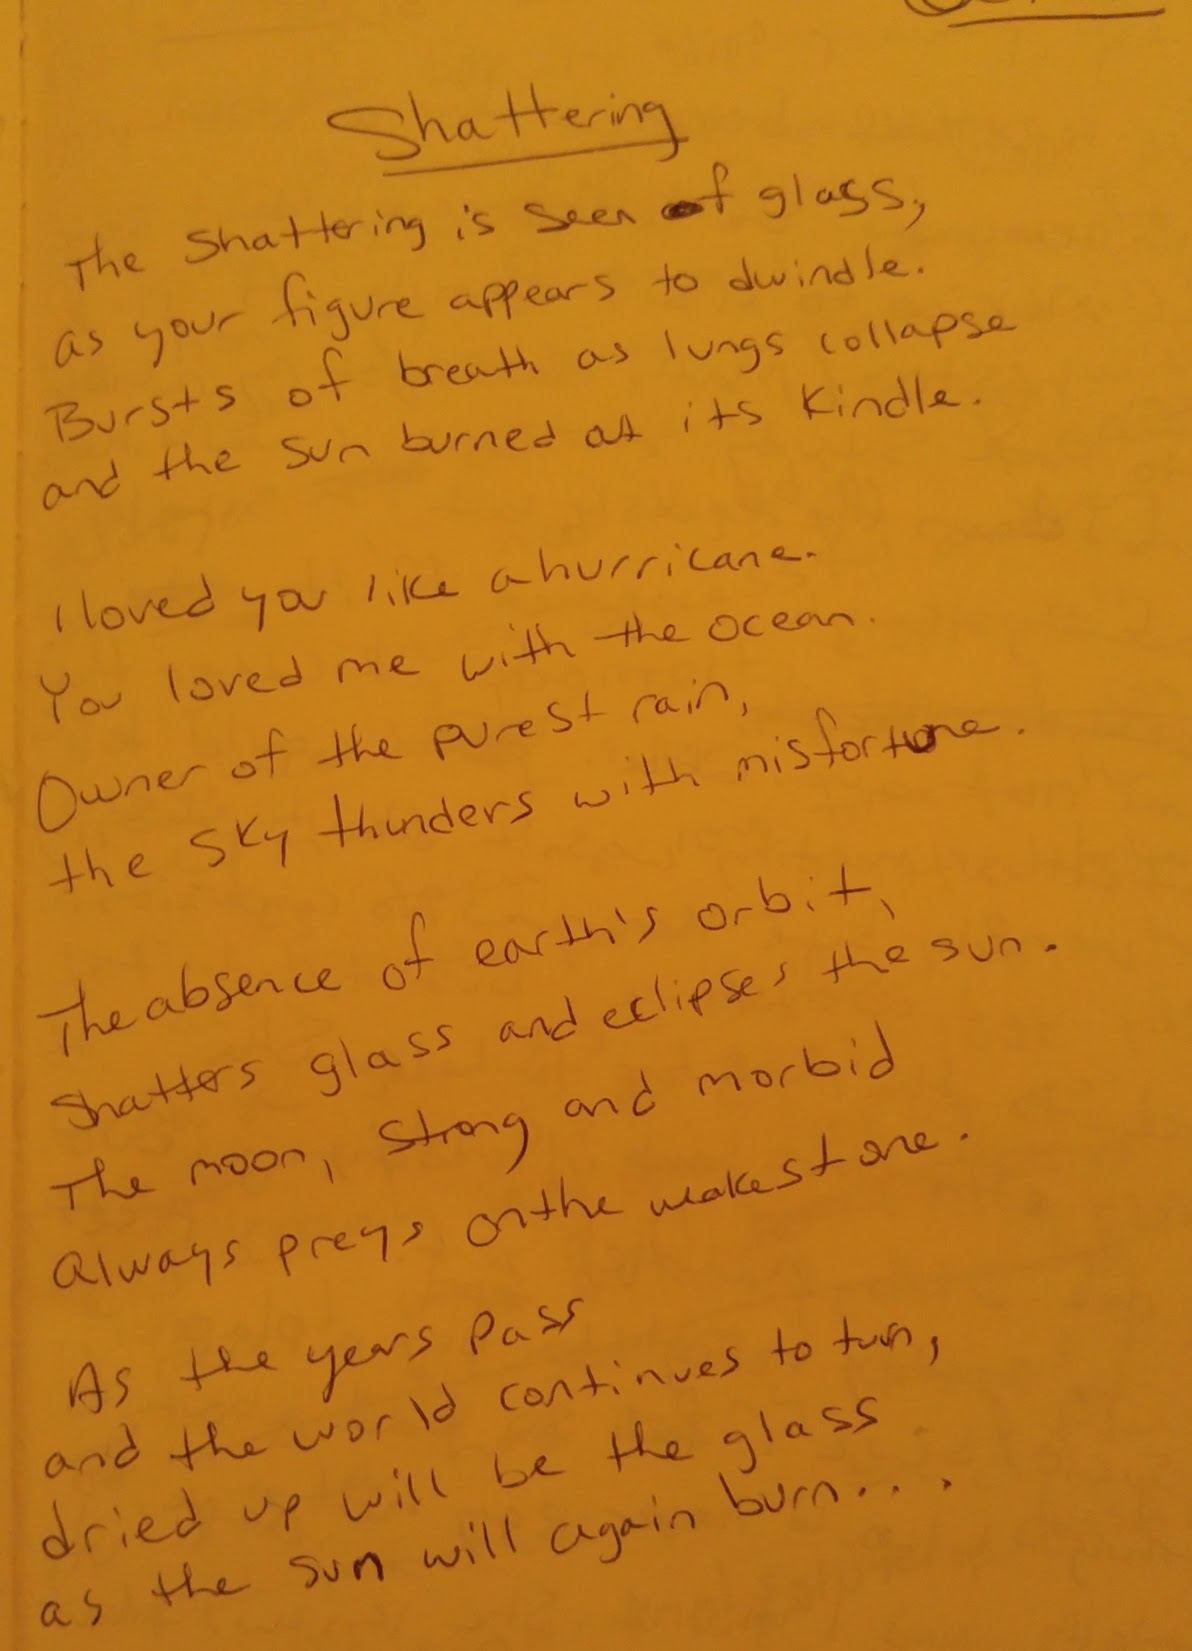 Shattering
The Shattering is seen of glass,
as your figure appears to dwindle.
Bursts of breath as lungs collapse
and the sun burned at its Kindle.
I loved you like a hurricane.
You loved me with the ocean.
Owner of the purest rain,
the sky thunders with misfortune.
The absence of earth's orbit,
Shatters glass and eclipses the sun.
The moon, strong and morbid
Always preys on the weakest one.
As the years pass
and the world continues to turn,
dried up will be the glass
as the sun will again burn...